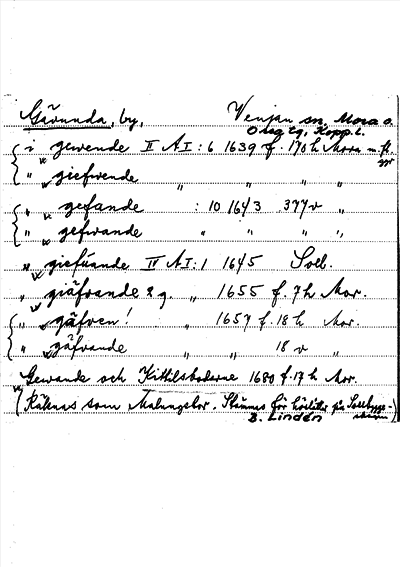 Gävunda, by, Venjan sn, Mora o.
Ovsg tg, Kopp. l.
i gewende II A I : 6 1639 f. 170 h Mora m.fl.
" giefwende " " " "
" gefande : 10 1643 377 v "
" gefwande " " " "
" giefúande IV A I : 1 1645 Soll.
" giäfvande 2 g. " 1655 f. 7 h Mor.
" gäfven! " 1657 f. 18 h Mor.
" gäfvande " " 18 v "
Gewande och Kittilsboderne 1680 f. 17 h Mor.
(Räknas som Malungsbor. för
B. Lindén